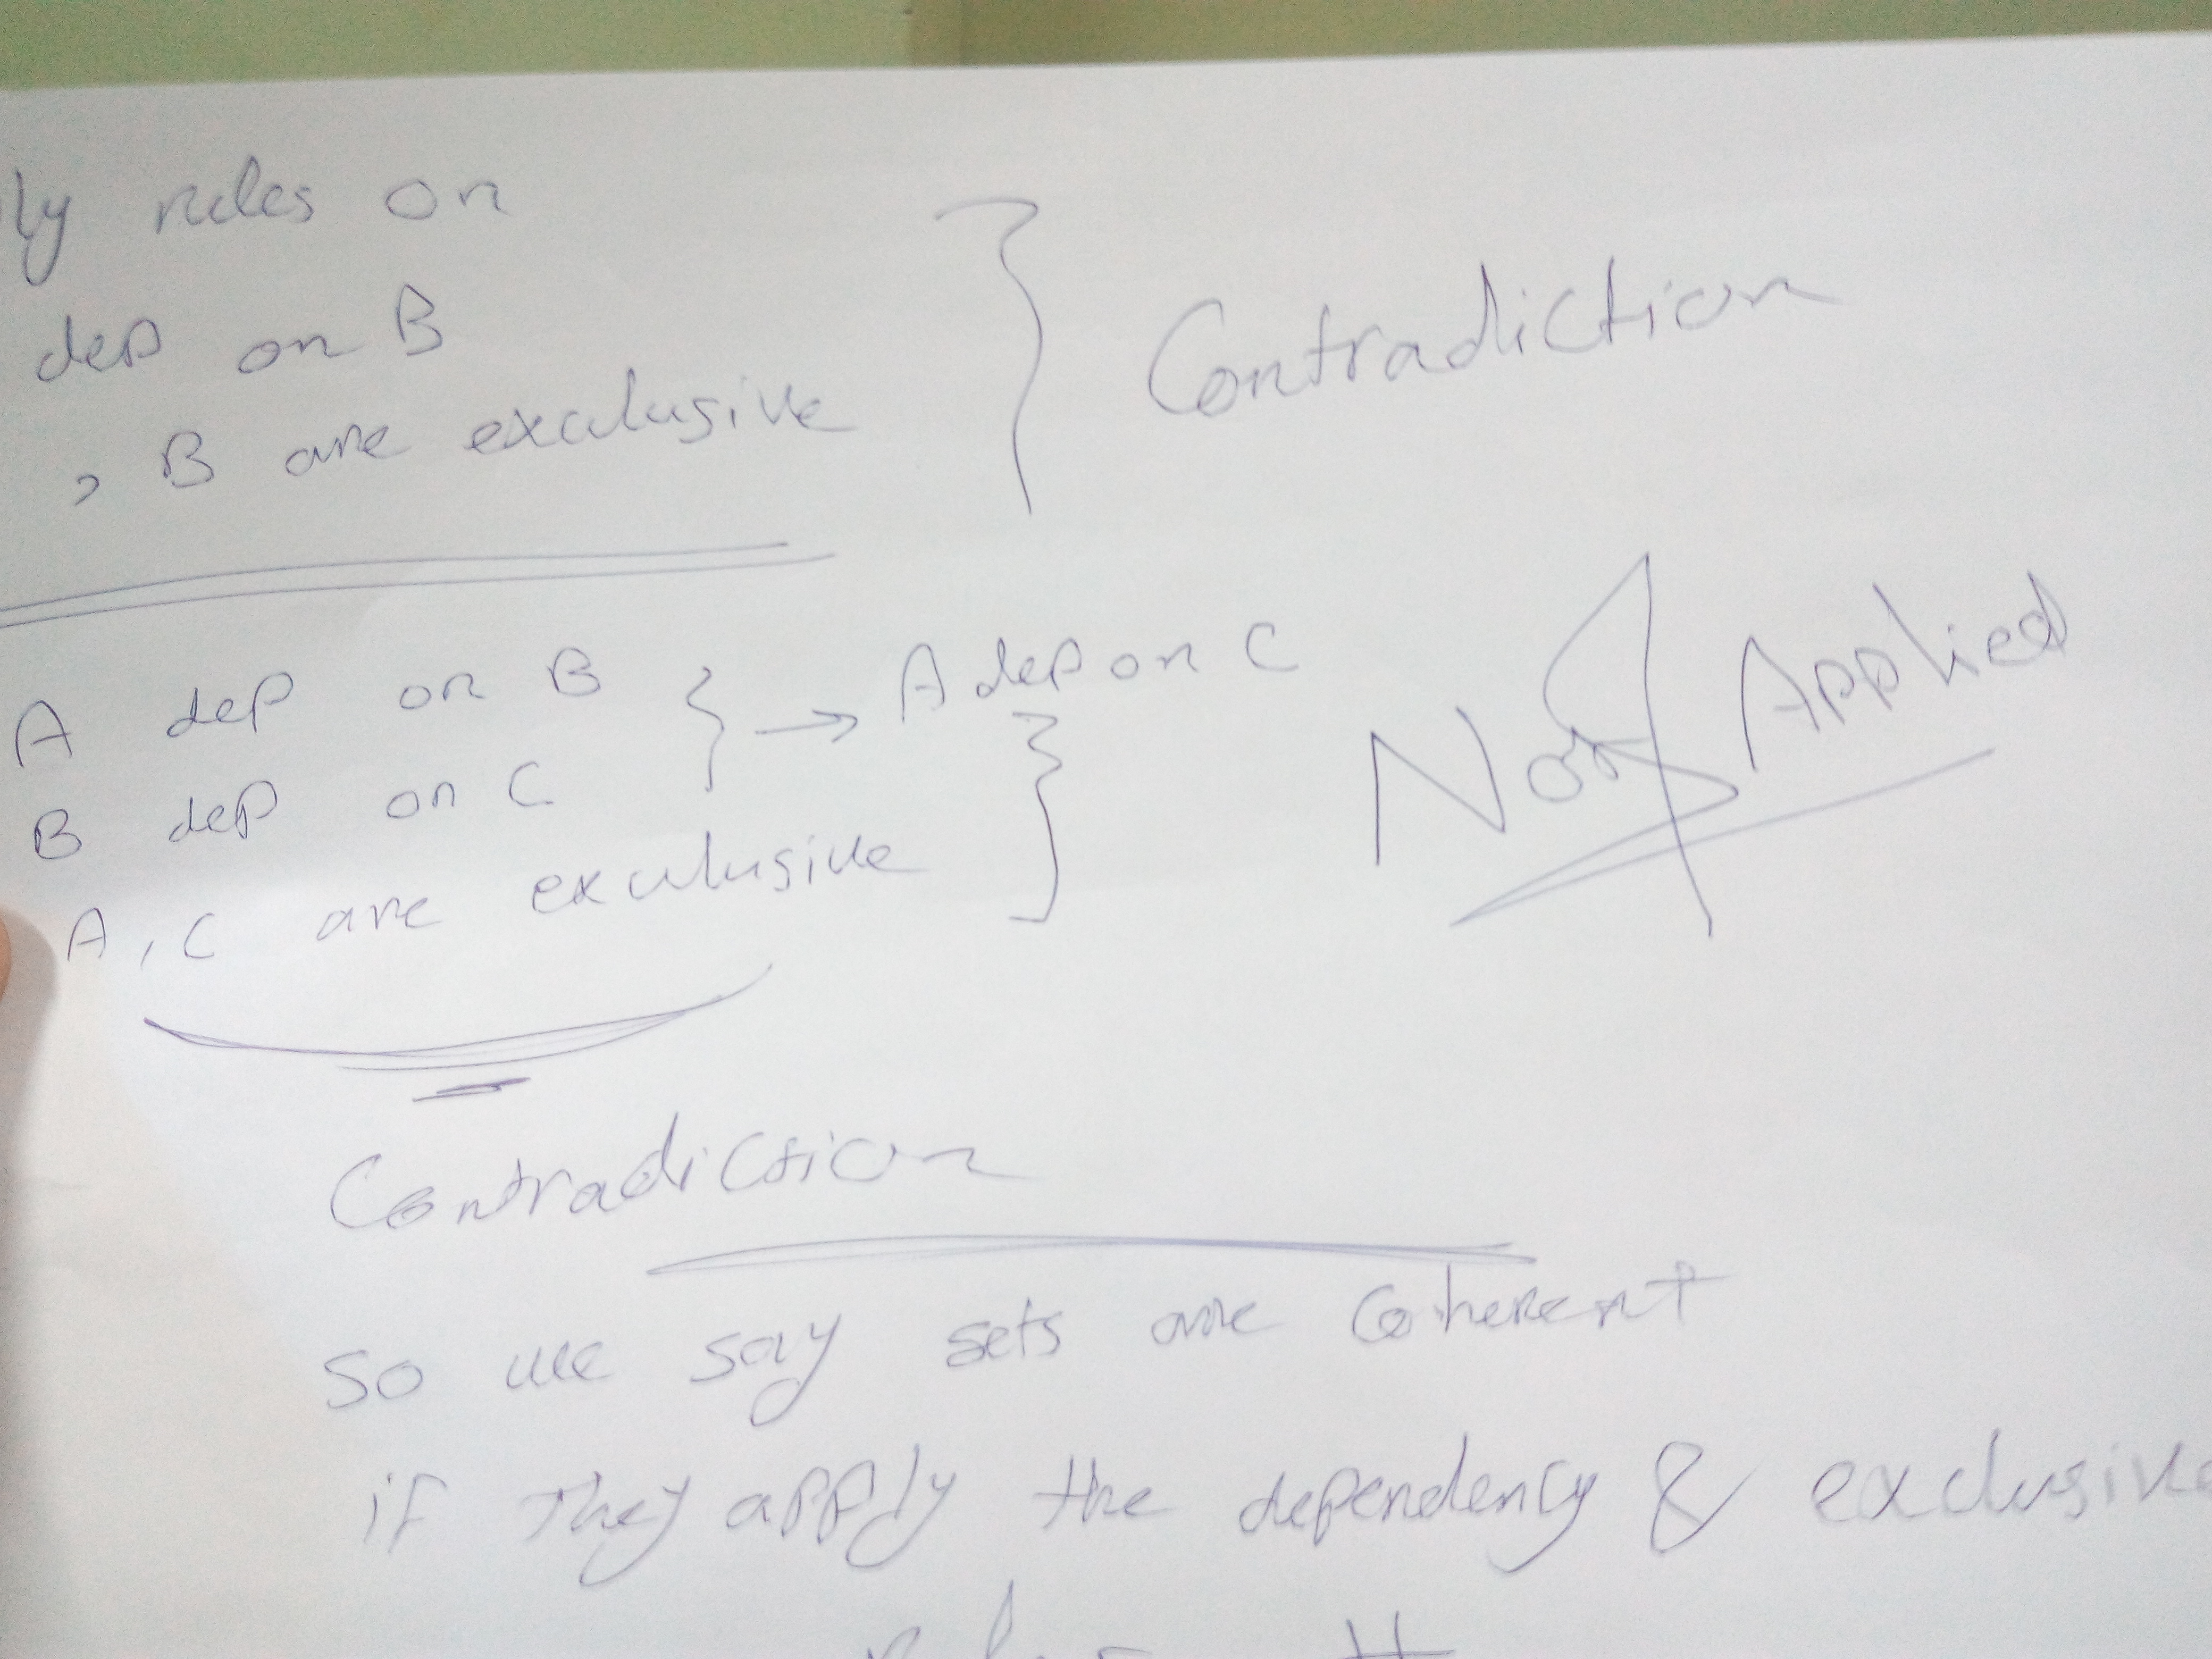 ly rules on
dep on B
, B are exculusive
Contradiction
A dep on B
B dep on C
→ A dep on C
A, C are exculusive
Not Applied
Contradiction
So we say sets are Coherent
if They apply the dependency & exclusive